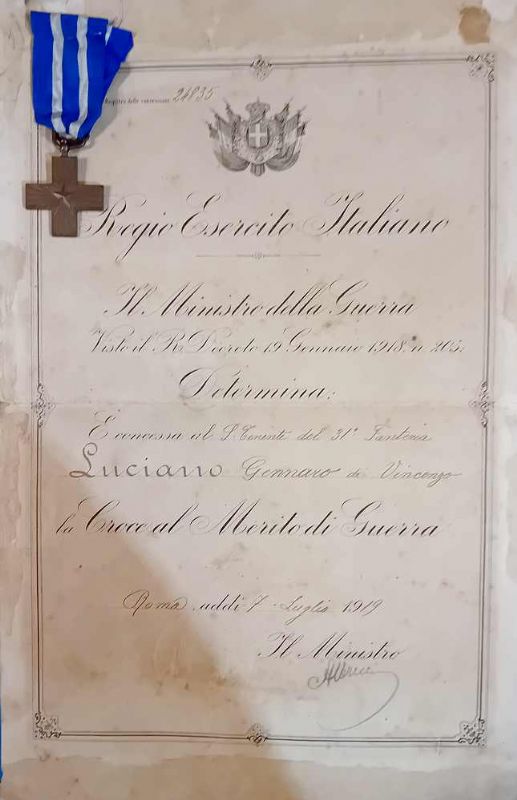 Registro delle concessioni 24835
Regio Esercito Italiano
Il Ministro della Guerra
Visto il R. Decreto 19 Gennaio 1918 n. 205
Determina:
È concessa al S. Tenente del 31° Fanteria
Luciano Gennaro di Vincenzo
la Croce al Merito di Guerra
Roma, addì 7 Luglio 1919
Il Ministro